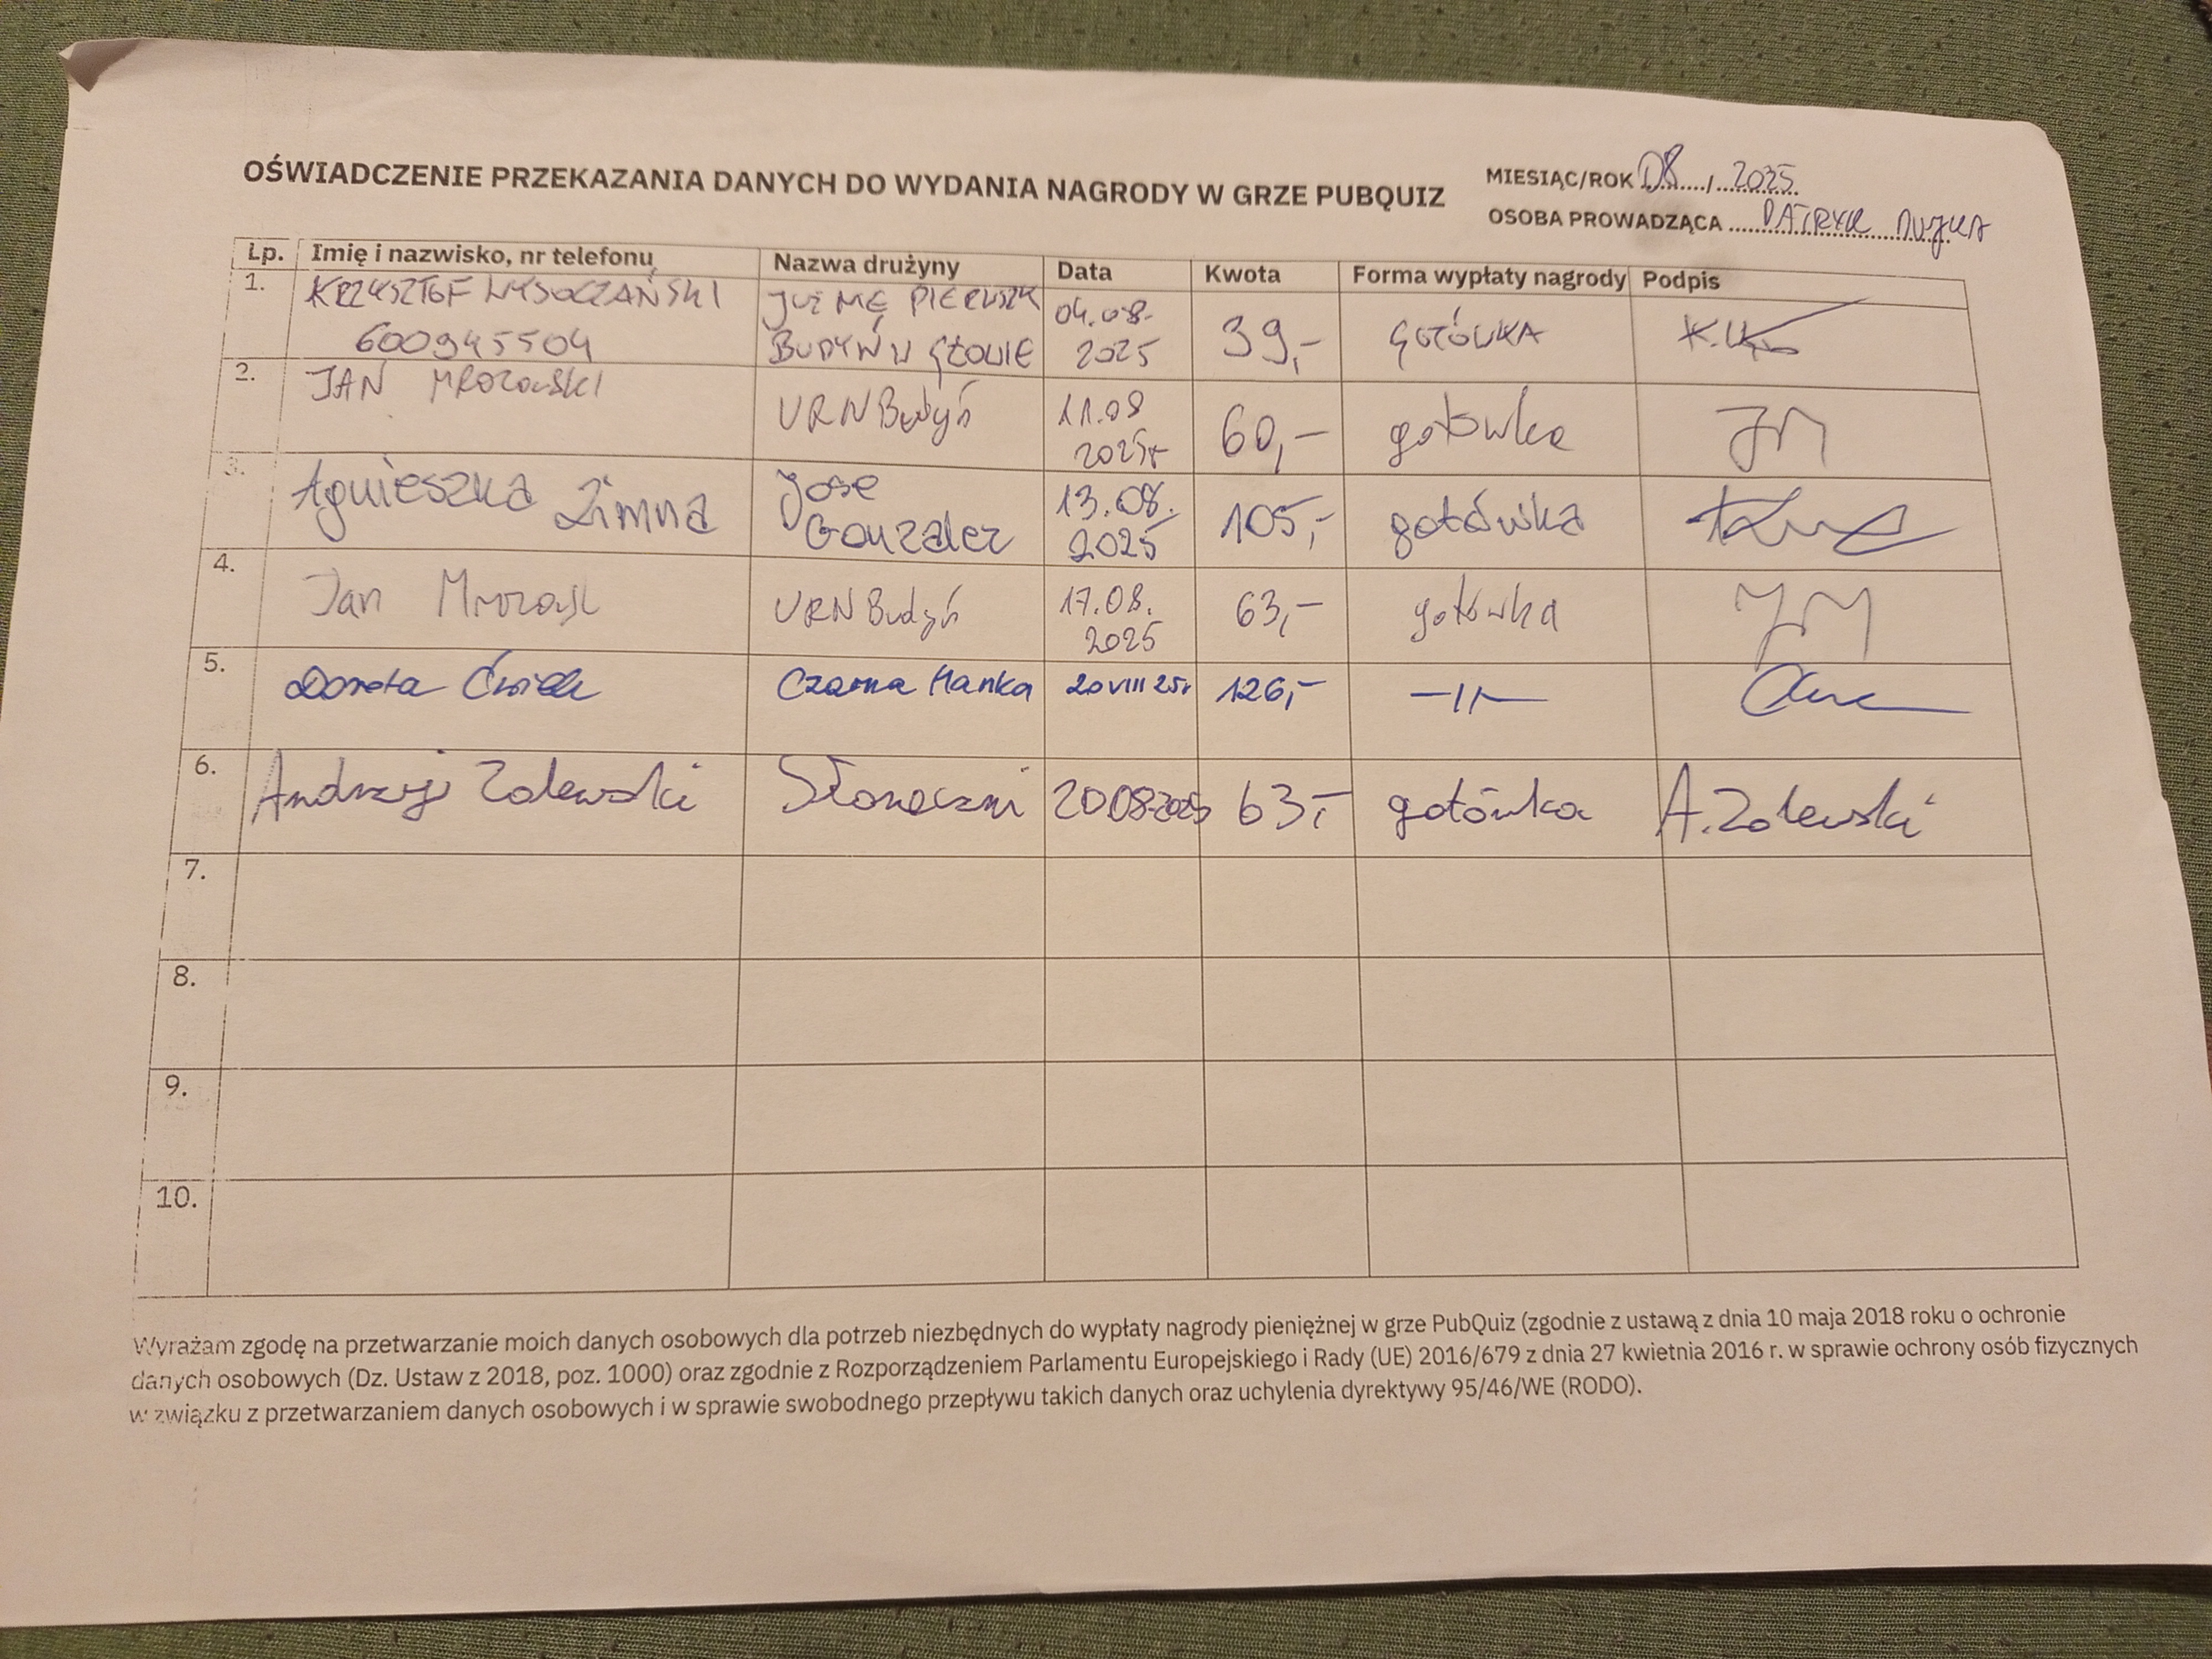 OŚWIADCZENIE PRZEKAZANIA DANYCH DO WYDANIA NAGRODY W GRZE PUBQUIZ
MIESIĄC/ROK 08 / 2025
OSOBA PROWADZĄCA PATRYK
Lp. Imię i nazwisko, nr telefonu Nazwa drużyny Data Kwota Forma wypłaty nagrody Podpis
1. KRZYSZTOF WYSOCZAŃSKI JUŻ MĘ PIERWSZY 04.08.
600945504 BUDYŃ W GŁOWIE 2025 39,- GOTÓWKA
2. JAN MROZOWSKI URN Budyń 11.08 60,- gotówka JM
2025r
3. Agnieszka Zimna Jose 13.08. 105,- gotówka
Gonzalez 2025
4. Jan URN Budyń 17.08. 63,- gotówka JM
2025
5. Dorota Ćwiek Czarna Mańka 20 VIII 25r 126,- -11-
6. Andrzej Zalewski Słoneczni 20.08.2025 63,- gotówka A. Zalewski
7.
8.
9.
10.
Wyrażam zgodę na przetwarzanie moich danych osobowych dla potrzeb niezbędnych do wypłaty nagrody pieniężnej w grze PubQuiz (zgodnie z ustawą z dnia 10 maja 2018 roku o ochronie
danych osobowych (Dz. Ustaw z 2018, poz. 1000) oraz zgodnie z Rozporządzeniem Parlamentu Europejskiego i Rady (UE) 2016/679 z dnia 27 kwietnia 2016 r. w sprawie ochrony osób fizycznych
w związku z przetwarzaniem danych osobowych i w sprawie swobodnego przepływu takich danych oraz uchylenia dyrektywy 95/46/WE (RODO).